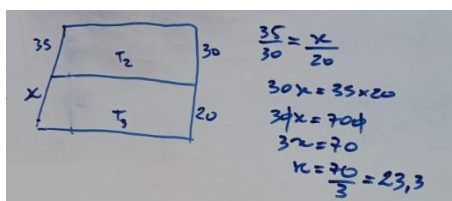 35
T2
30
x
T3
20
35/30 = x/20
30x = 35x20
30x = 700
3x = 70
x = 70/3 = 23,3